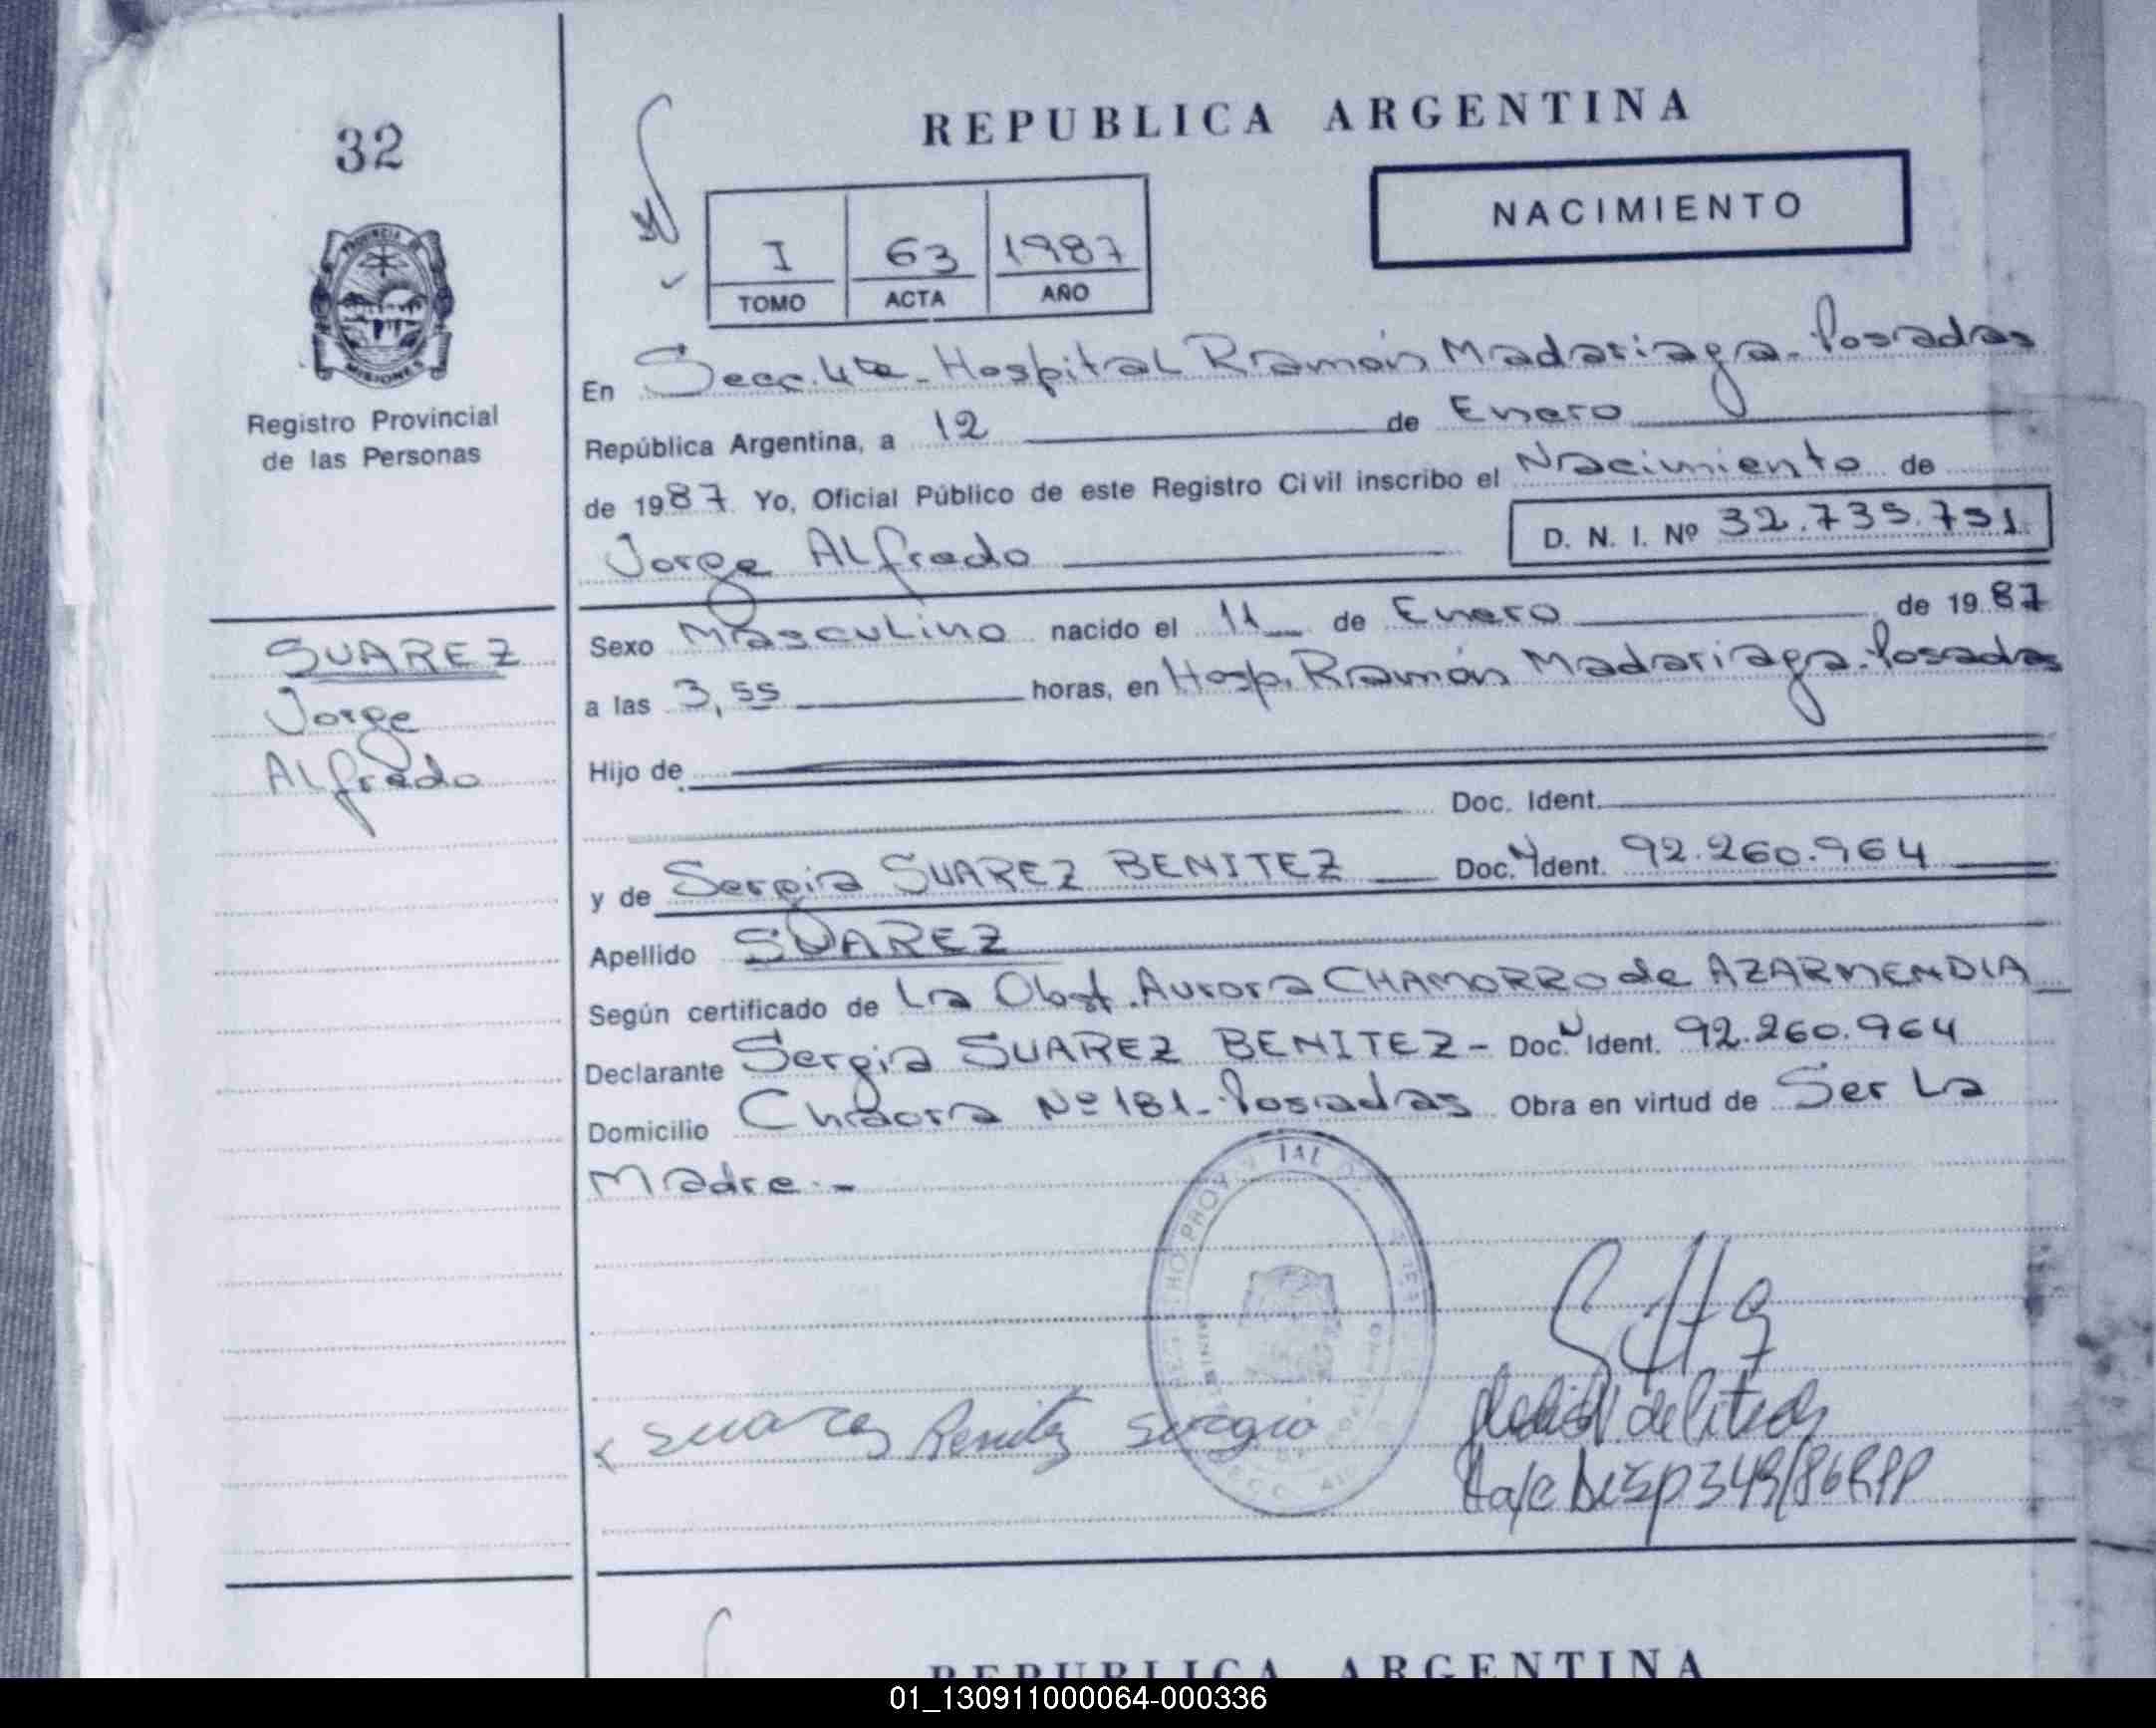 32
PROVINCIA DE
MISIONES
Registro Provincial
de las Personas
SUAREZ
Jorge
Alfredo
REPUBLICA ARGENTINA
NACIMIENTO
I 63 1987
TOMO ACTA AÑO
En Secc. 4ta - Hospital Ramón Madariaga - Posadas
República Argentina, a 12 de Enero
de 1987 Yo, Oficial Público de este Registro Civil inscribo el Nacimiento de
Jorge Alfredo D. N. I. Nº 32.735.751
Sexo Masculino nacido el 11 de Enero de 1987
a las 3,55 horas, en Hosp. Ramón Madariaga - Posadas
Hijo de
Doc. Ident.
y de Sergia SUAREZ BENITEZ Doc. Ident. 92.260.964
Apellido SUAREZ
Según certificado de La Obst. Aurora CHAMORRO de AZARMENDIA
Declarante Sergia SUAREZ BENITEZ - Doc. Ident. 92.260.964
Domicilio Chacra Nº 181 - Posadas Obra en virtud de Ser La
Madre.-
suarez Benitez sergia
a/c Disp 349/86 RPP
REPUBLICA ARGENTINA
01_130911000064-000336